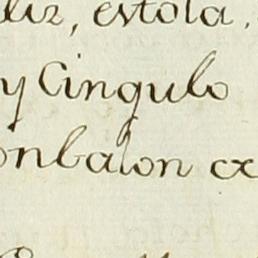 liz, estola,
y Cingulo
onbalon ex